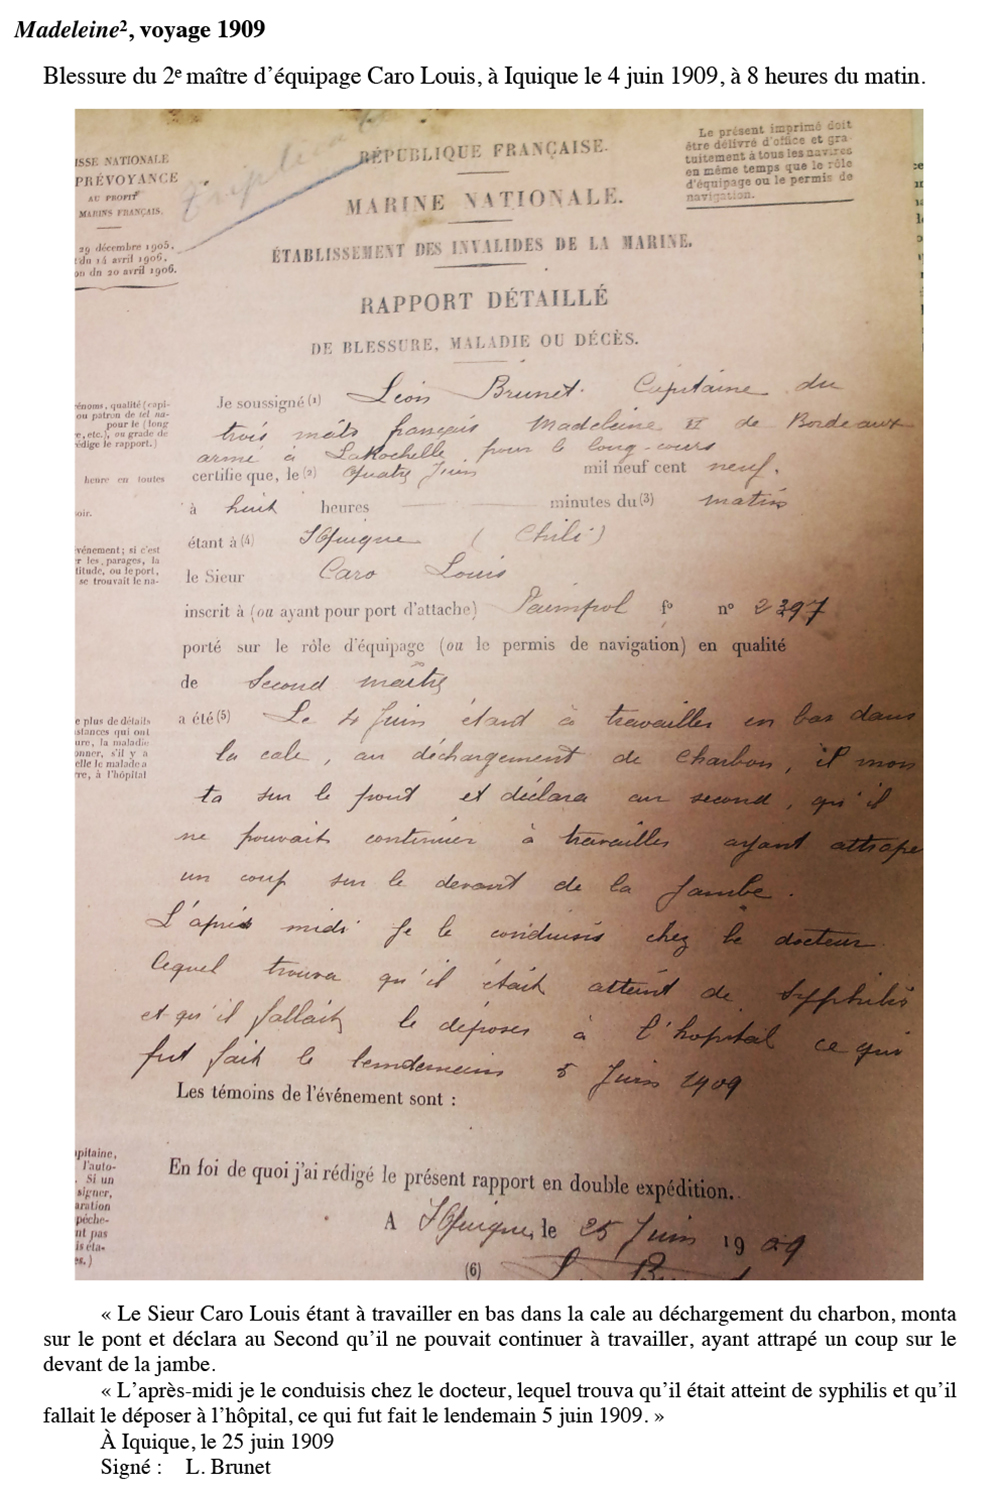 Madeleine², voyage 1909
Blessure du 2e maître d'équipage Caro Louis, à Iquique le 4 juin 1909, à 8 heures du matin.
Triplicata
ISSE NATIONALE
PRÉVOYANCE
AU PROFIT
MARINS FRANÇAIS.
29 décembre 1905.
du 14 avril 1906.
on du 20 avril 1906.
RÉPUBLIQUE FRANÇAISE.
MARINE NATIONALE.
ÉTABLISSEMENT DES INVALIDES DE LA MARINE.
Le présent imprimé doit
être délivré d'office et gra-
tuitement à tous les navires
en même temps que le rôle
d'équipage ou le permis de
navigation.
RAPPORT DÉTAILLÉ
DE BLESSURE, MALADIE OU DÉCÈS.
énoms, qualité (capi-
ou patron de tel na-
pour le (long
e, etc.), ou grade de
édige le rapport.)
heure en toutes
oir.
vénement; si c'est
r les parages, la
titude, ou le port,
se trouvait le na-
Je soussigné (1) Léon Brunet. Capitaine du
trois mâts français Madeleine II de Bordeaux
armé à LaRochelle pour le long-cours
certifie que, le (2) Quatre Juin mil neuf cent neuf.
à huit heures minutes du (3) matin
étant à (4) Iquique (Chili)
le Sieur Caro Louis
inscrit à (ou ayant pour port d'attache) Paimpol f° n° 2397
porté sur le rôle d'équipage (ou le permis de navigation) en qualité
de Second maître
e plus de détails
stances qui ont
ure, la maladie
onner, s'il y a
elle le malade a
re, à l'hôpital
a été (5) Le 4 Juin étant à travailler en bas dans
la cale, au déchargement de Charbon, il mon
ta sur le pont et déclara au second, qu'il
ne pouvait continuer à travailler ayant attrapé
un coup sur le devant de la Jambe.
L'après midi Je le conduisis chez le docteur
lequel trouva qu'il était atteint de syphilis
et qu'il fallait le déposer à l'hopital ce qui
fut fait le lendemain 5 Juin 1909
Les témoins de l'événement sont :
pitaine,
l'auto-
. Si un
signer,
aration
pêche-
nt pas
is éta-
es.)
En foi de quoi j'ai rédigé le présent rapport en double expédition.
A Iquique, le 25 Juin 1909
(6) L. Brunet
« Le Sieur Caro Louis étant à travailler en bas dans la cale au déchargement du charbon, monta
sur le pont et déclara au Second qu'il ne pouvait continuer à travailler, ayant attrapé un coup sur le
devant de la jambe.
« L'après-midi je le conduisis chez le docteur, lequel trouva qu'il était atteint de syphilis et qu'il
fallait le déposer à l'hôpital, ce qui fut fait le lendemain 5 juin 1909. »
À Iquique, le 25 juin 1909
Signé : L. Brunet